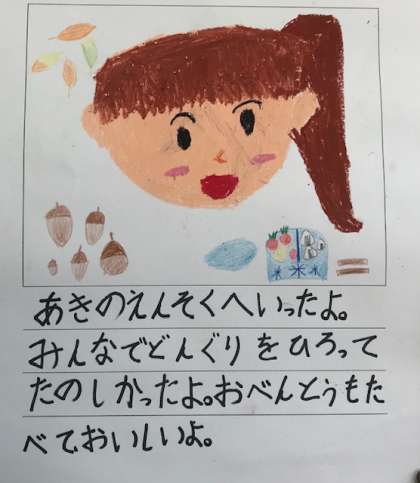 あきのえんそくへいったよ。
みんなでどんぐりをひろって
たのしかったよ。おべんとうもた
べて、おいしいよ。